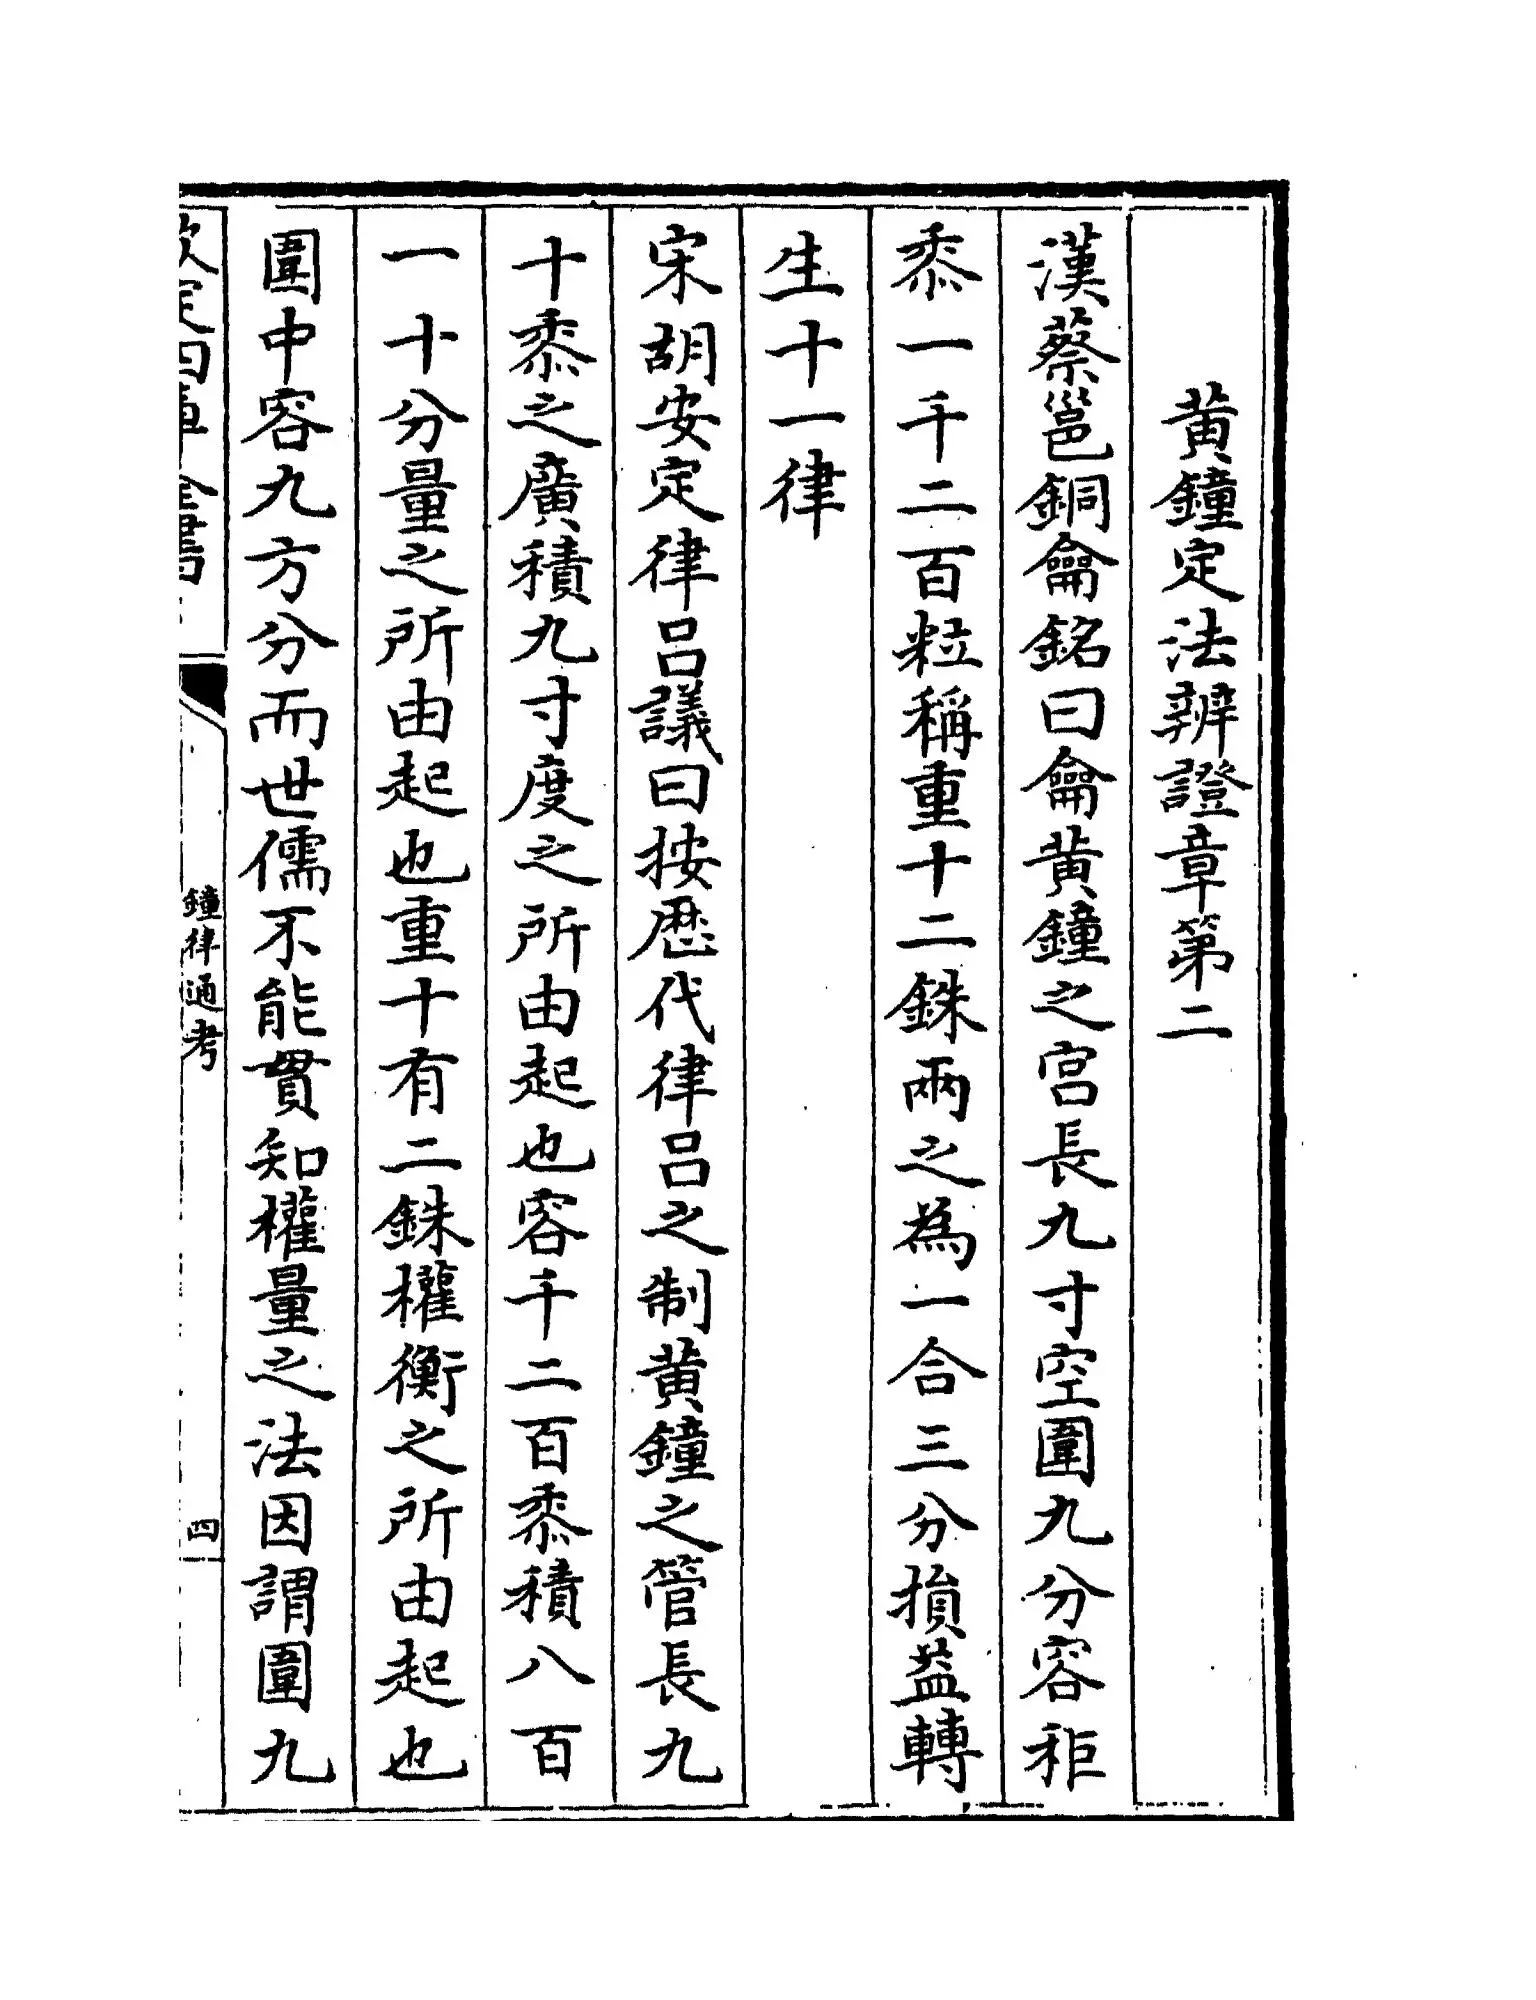 黄鐘定法辨證章第二
漢蔡邕銅龠銘曰龠黄鐘之宫長九寸空圍九分容秬
黍一千二百粒稱重十二銖兩之為一合三分損益轉
生十一律
宋胡安定律呂議曰按歴代律呂之制黄鐘之管長九
十黍之廣積九寸度之所由起也容千二百黍積八百
一十分量之所由起也重十有二銖權衡之所由起也
圍中容九方分而世儒不能貫知權量之法因謂圍九
欽定四庫全書
鐘律通考
四